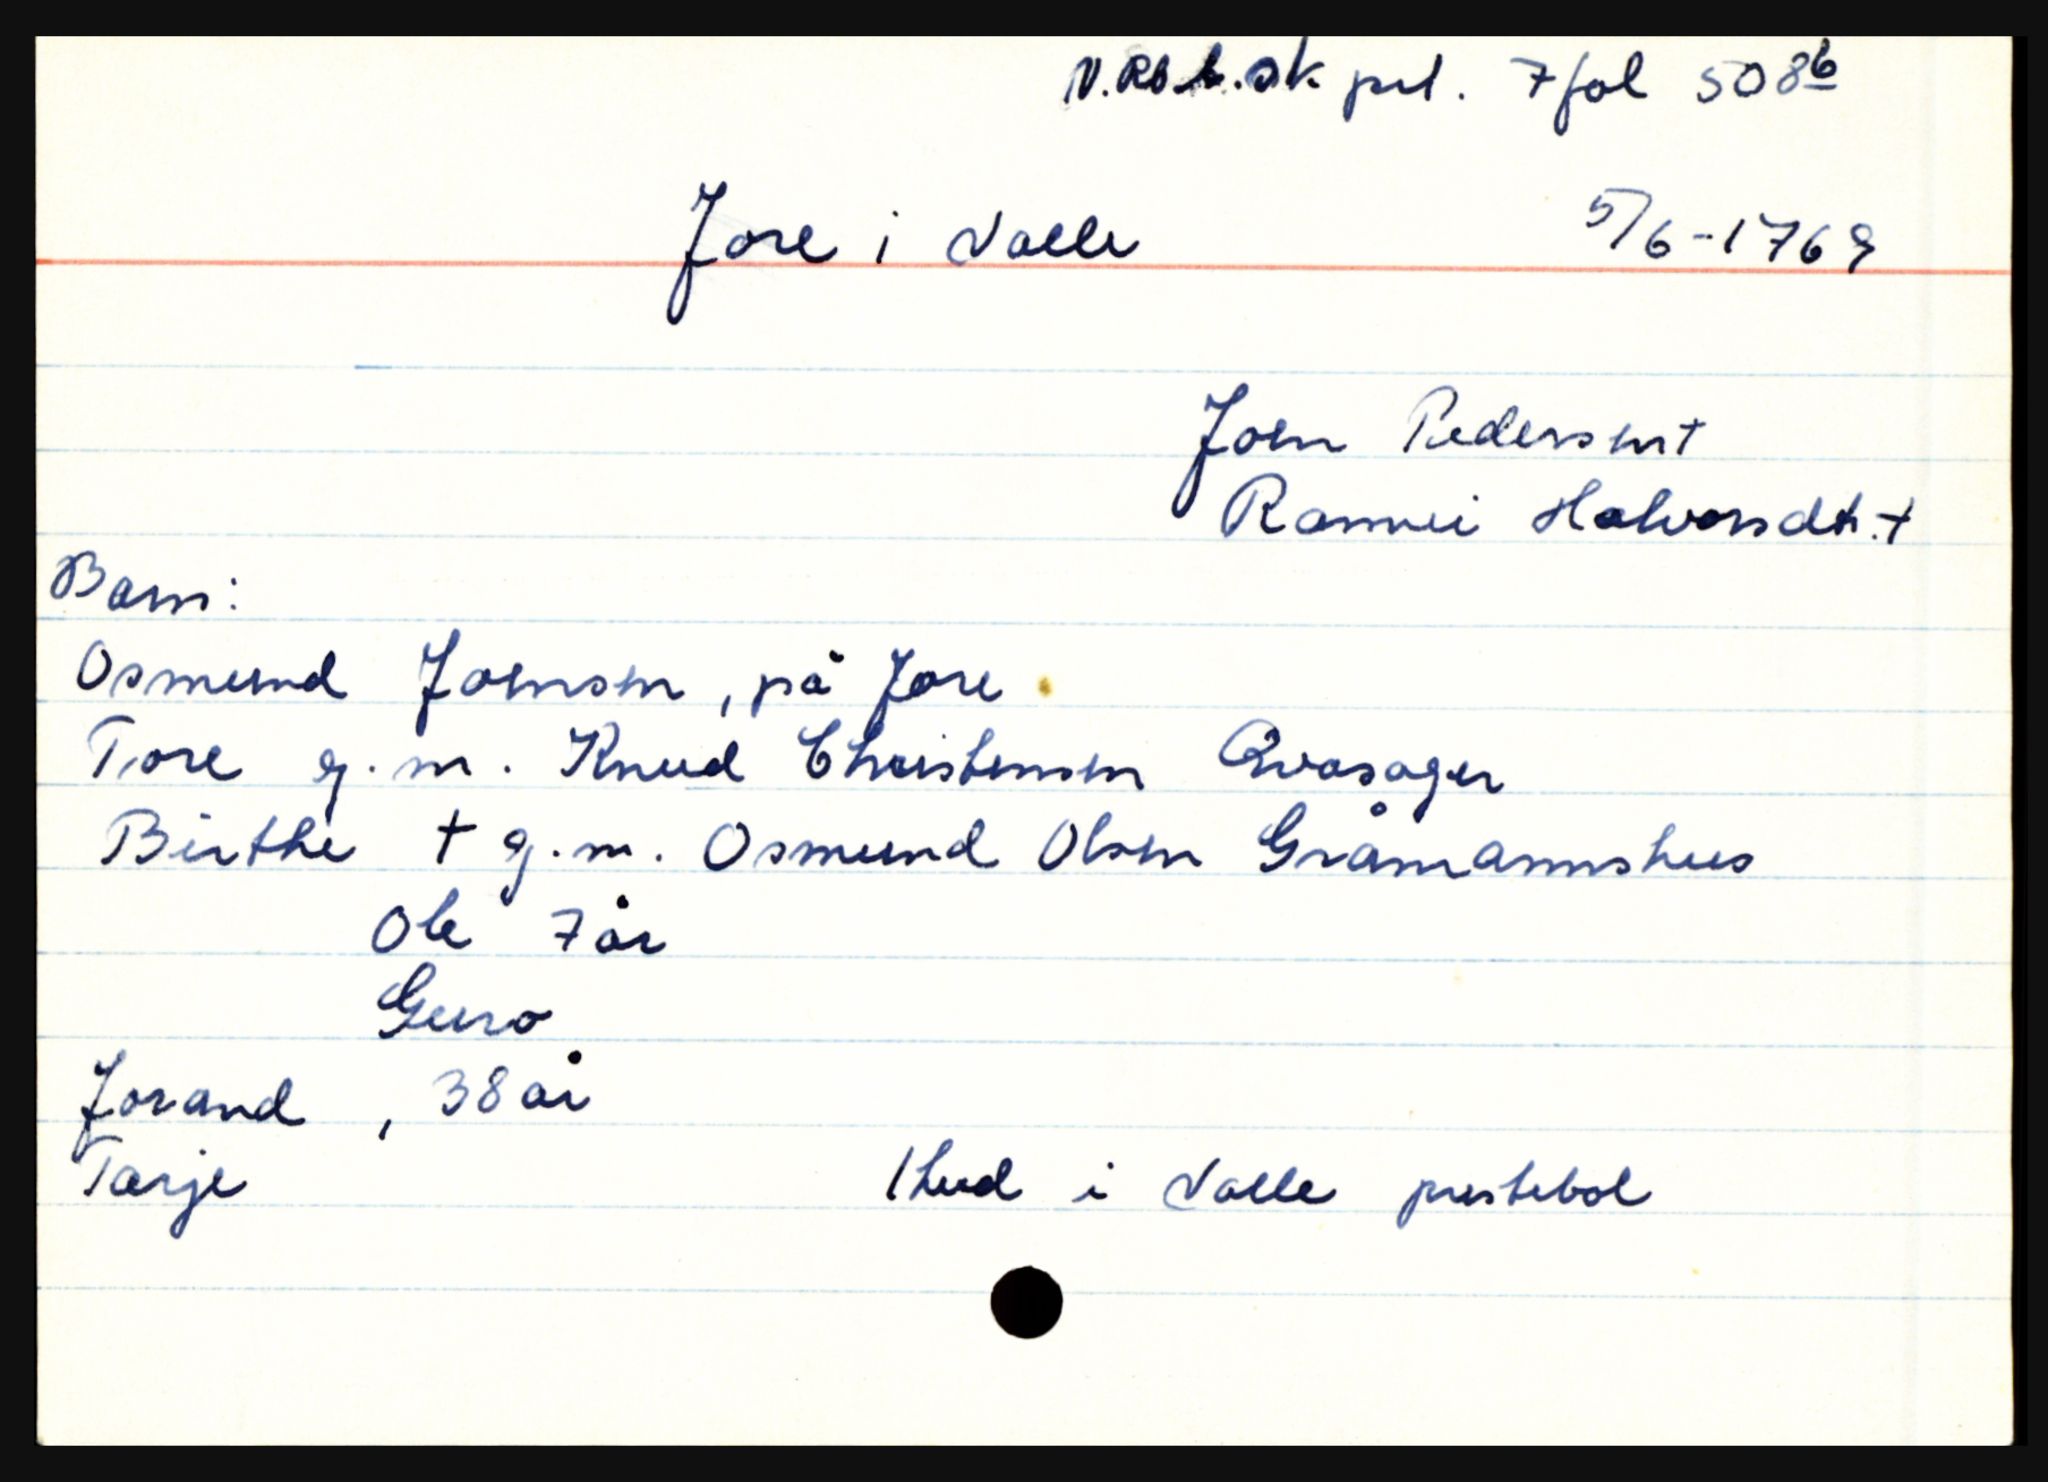 N.Rb.l.sk prt. 7 fol 508b
Jore i Valle 5/6-1769
Joen Pedersen †
Ramvei Halvorsdtr. †
Barn:
Osmund Joensen, på Jore
Tore g.m. Knud Christensen Qvasager
Birthe † g.m. Osmund Olsen Gråmannshus
Ole 7 år
Guro
Jorand, 38 år
Tarje 1 hud i Valle prestebol